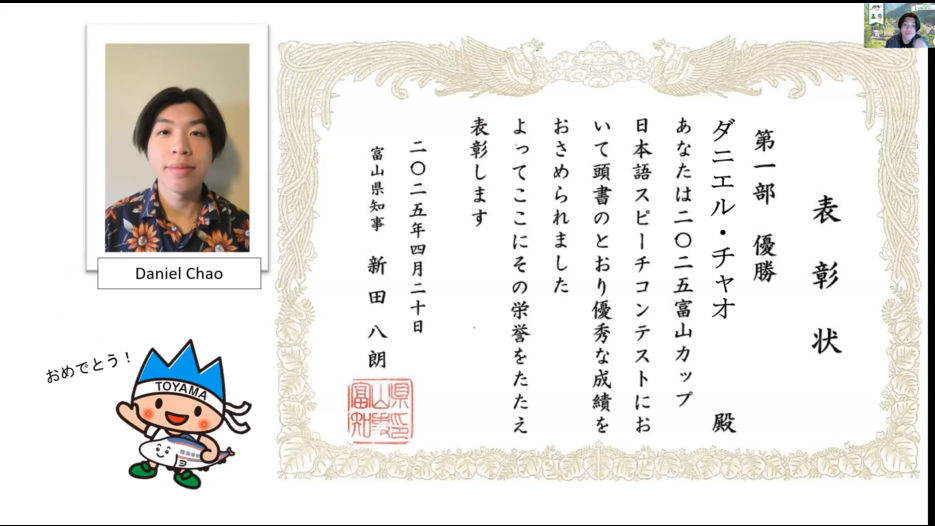 Daniel Chao
おめでとう！
TOYAMA
表彰状
第一部 優勝
ダニエル・チャオ 殿
あなたは二〇二五富山カップ
日本語スピーチコンテストにお
いて頭書のとおり優秀な成績を
おさめられました
よってここにその栄誉をたたえ
表彰します
二〇二五年四月二十日
富山県知事 新田八朗